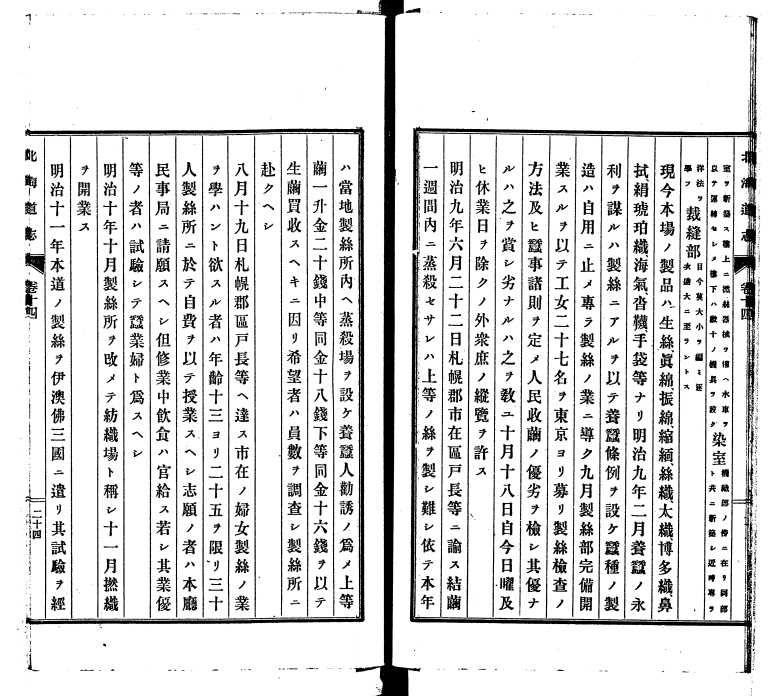 北海道志 卷十四
室ヲ新築ス樓上ニ器械ヲ備ヘ水車ヲ
以テ運轉セシメ樓下ハ數十ノ機具ヲ設ク 染室 機織部ノ傍ニ在リ同部
ト共ニ新築シ近時專ラ
洋法ヲ
學フ 裁縫部 目今莫大小ヲ編ミ逐
次盛大ニ至ラントス
現今本場ノ製品ハ生絲眞綿振綿縮緬絲織太織博多織鼻
拭絹琥珀織海氣沓韈手袋等ナリ明治九年二月養蠶ノ永
利ヲ謀ルハ製絲ニアルヲ以テ養蠶條例ヲ設ケ蠶種ノ製
造ハ自用ニ止メ專ラ製絲ノ業ニ導ク九月製絲部完備開
業スルヲ以テ工女二十七名ヲ東京ヨリ募リ製絲檢查ノ
方法及ヒ蠶事諸則ヲ定メ人民收繭ノ優劣ヲ檢シ其優ナ
ルハ之ヲ賞シ劣ナルハ之ヲ敎ユ十月十八日自今日曜及
ヒ休業日ヲ除クノ外衆庶ノ縱覽ヲ許ス
明治九年六月二十二日札幌郡市在區戶長等ニ諭ス結繭
一週間內ニ蒸殺セサレハ上等ノ絲ヲ製シ難シ依テ本年
ハ當地製絲所內ヘ蒸殺場ヲ設ケ養蠶人勸誘ノ爲メ上等
繭一升金二十錢中等同金十八錢下等同金十六錢ヲ以テ
生繭買收スヘキニ因リ希望者ハ員數ヲ調查シ製絲所ニ
赴クヘシ
八月十九日札幌郡區戶長等ヘ達ス市在ノ婦女製絲ノ業
ヲ學ハント欲スル者ハ年齡十三ヨリ二十五ヲ限リ三十
人製絲所ニ於テ自費ヲ以テ授業スヘシ志願ノ者ハ本廳
民事局ニ請願スヘシ但修業中飮食ハ官給ス若シ其業優
等ノ者ハ試驗シテ蠶業婦ト爲スヘシ
明治十年十月製絲所ヲ改メテ紡織場ト稱シ十一月撚織
ヲ開業ス
明治十一年本道ノ製絲ヲ伊澳佛三國ニ遣リ其試驗ヲ經
北海道志 卷十四 二十四